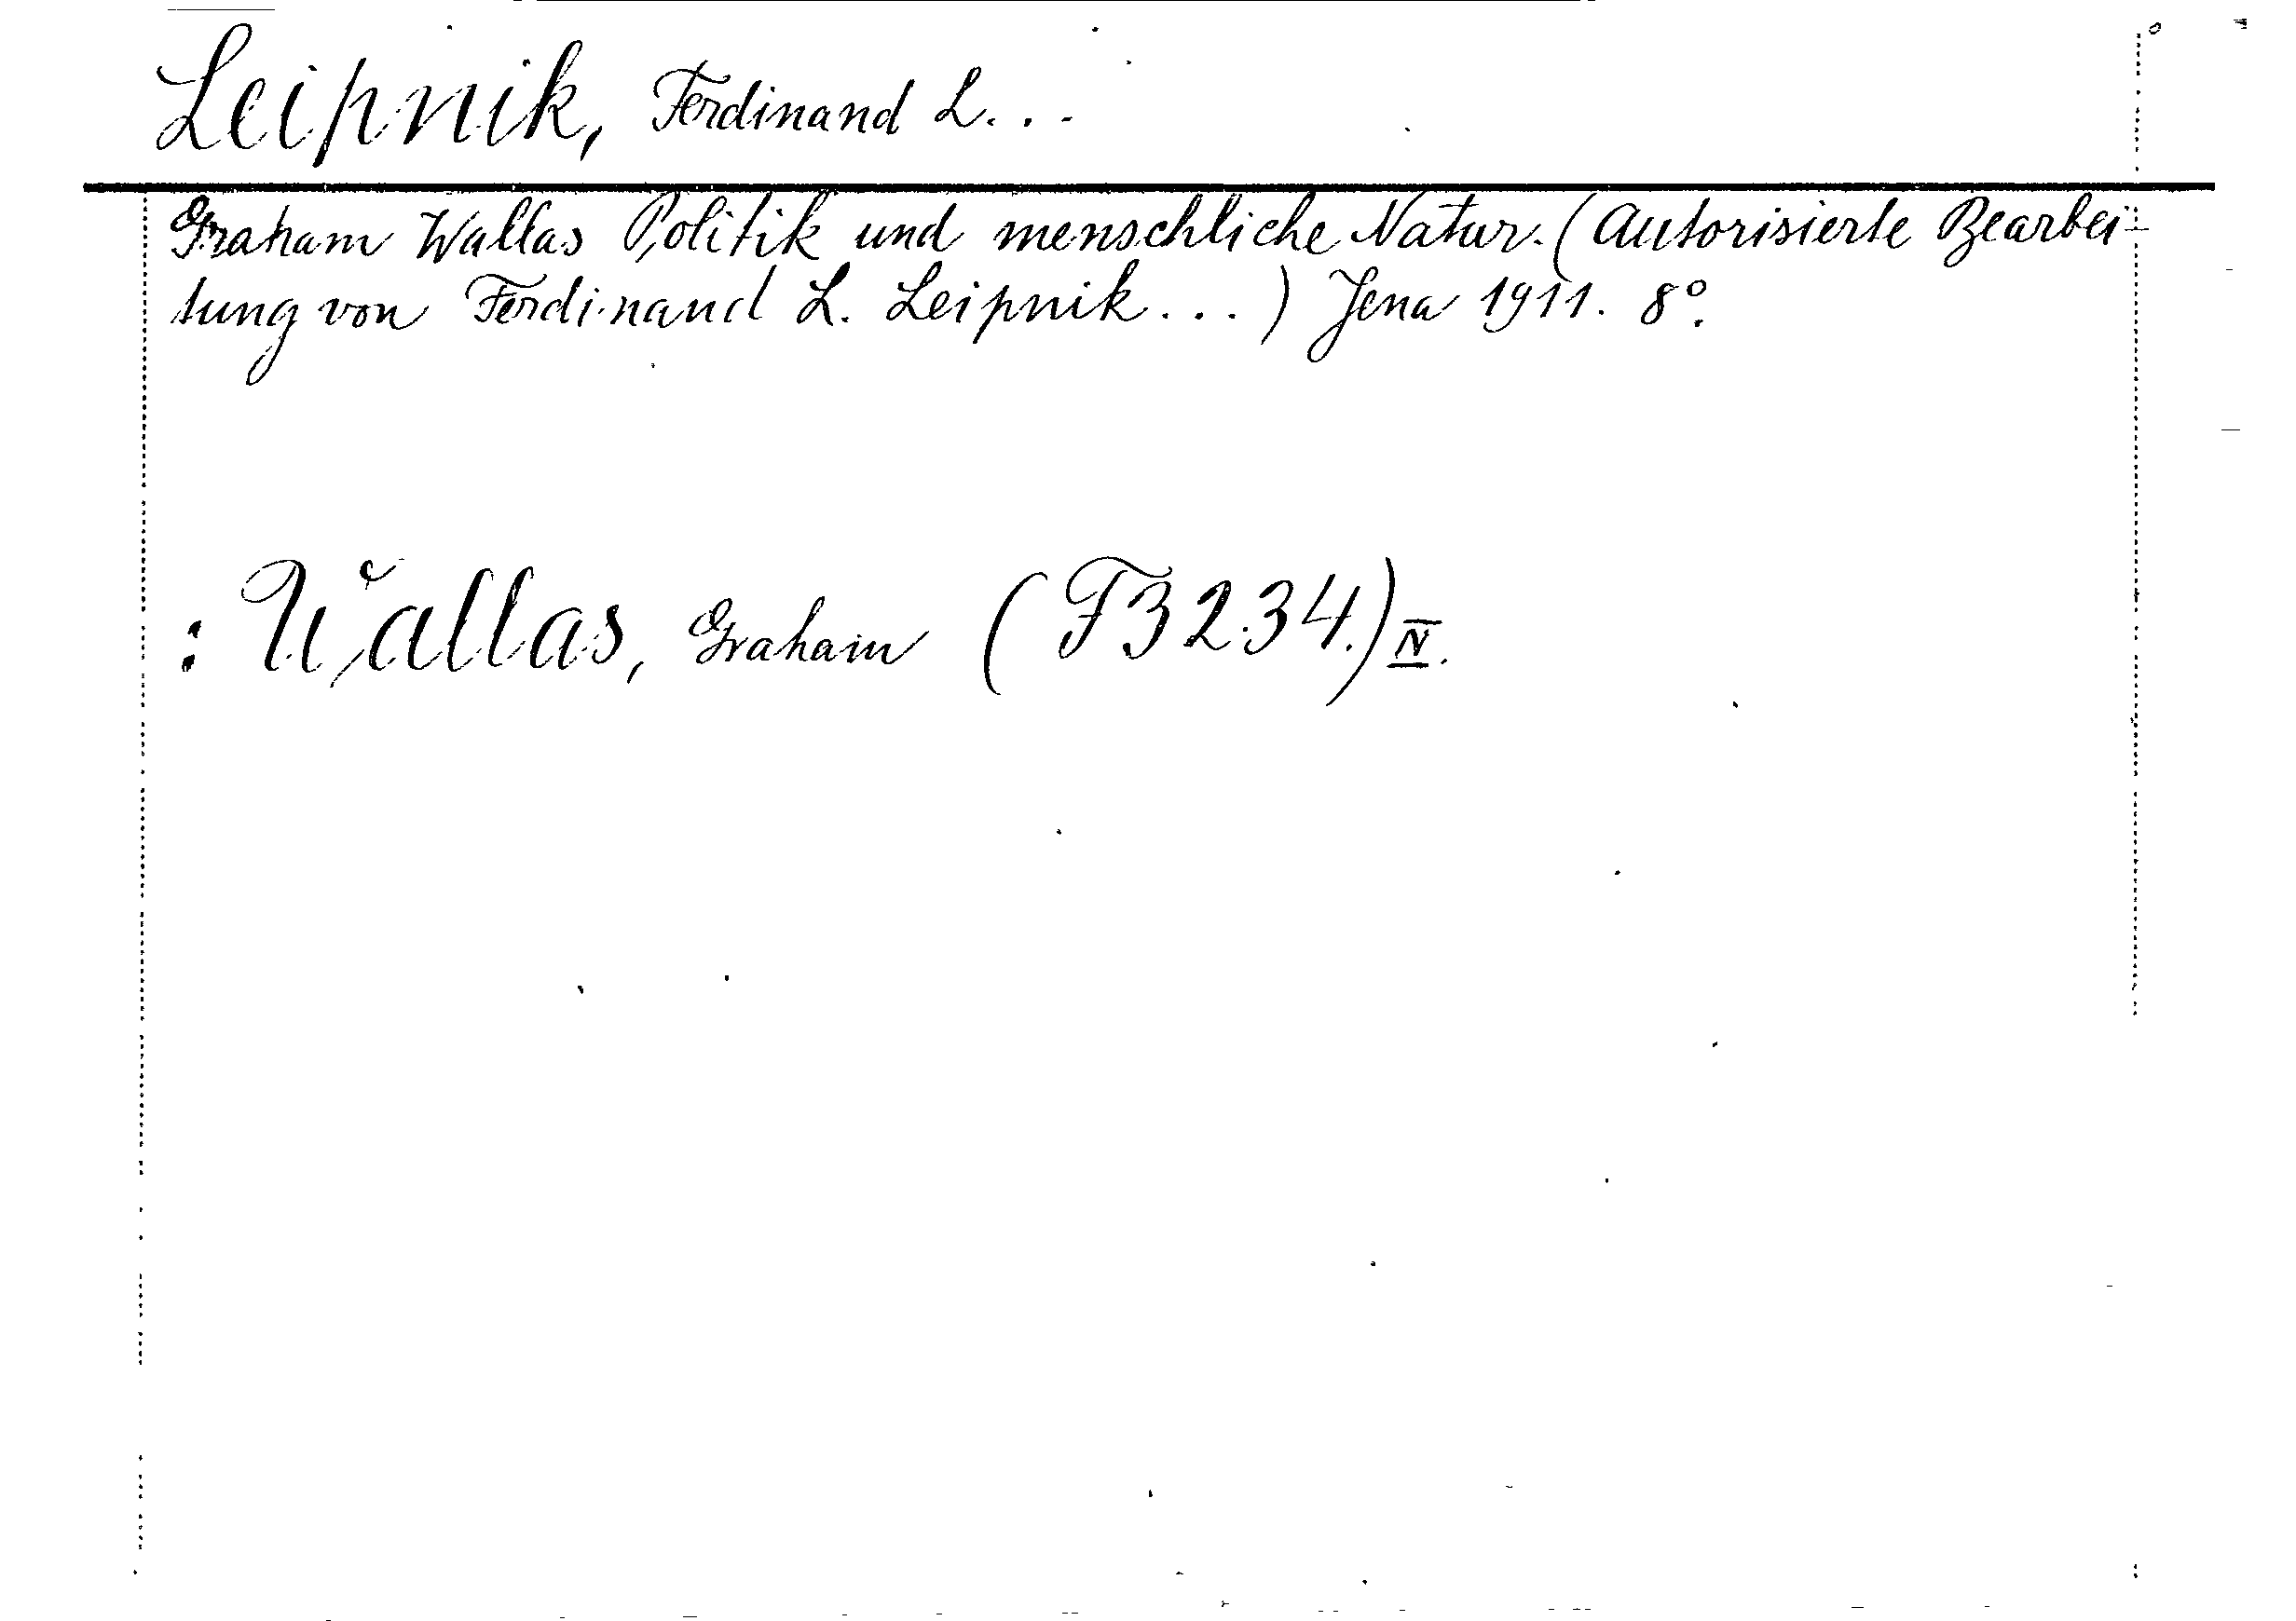 Leipnik, Ferdinand L. . .
Graham Wallas Politik und menschliche Natur. (Autorisierte Bearbei-
tung von Ferdinand L. Leipnik . . . ) Jena 1911. 8°.
: Wallas, Graham (F3234.) IV.